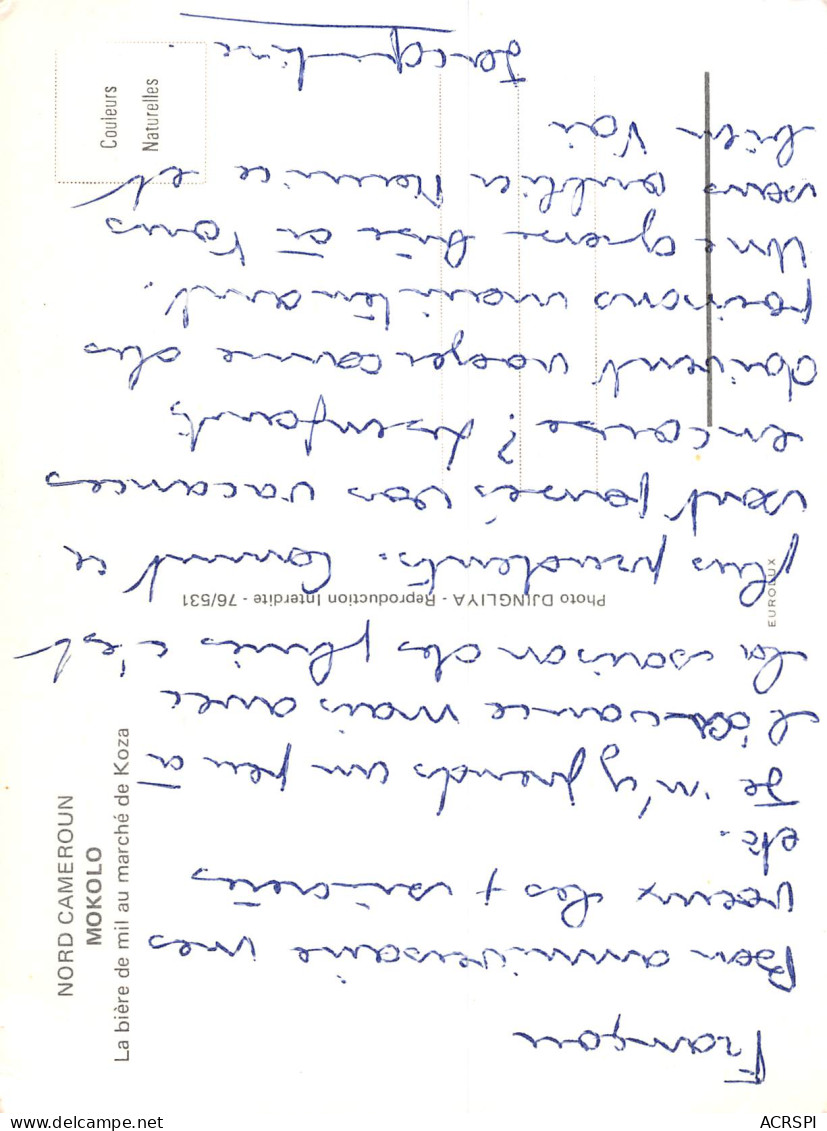 NORD CAMEROUN
MOKOLO
La bière de mil au marché de Koza
Couleurs
Naturelles
Photo DJINGLIYA - Reproduction Interdite - 76/531
EUROLUX
Françou
Bon anniversaire mes
voeux les + sincères
etc.
Je m'y prends un peu à
l'avance mais avec
la saison des pluies c'est
plus prudent. Comment ce
sont passés vos vacances
en corse? Les enfants
doivent nager comme des
poissons maintenant.
Une grosse bise à tous
sans oublier Maurice et
bien
Jacqueline
ACRSPI